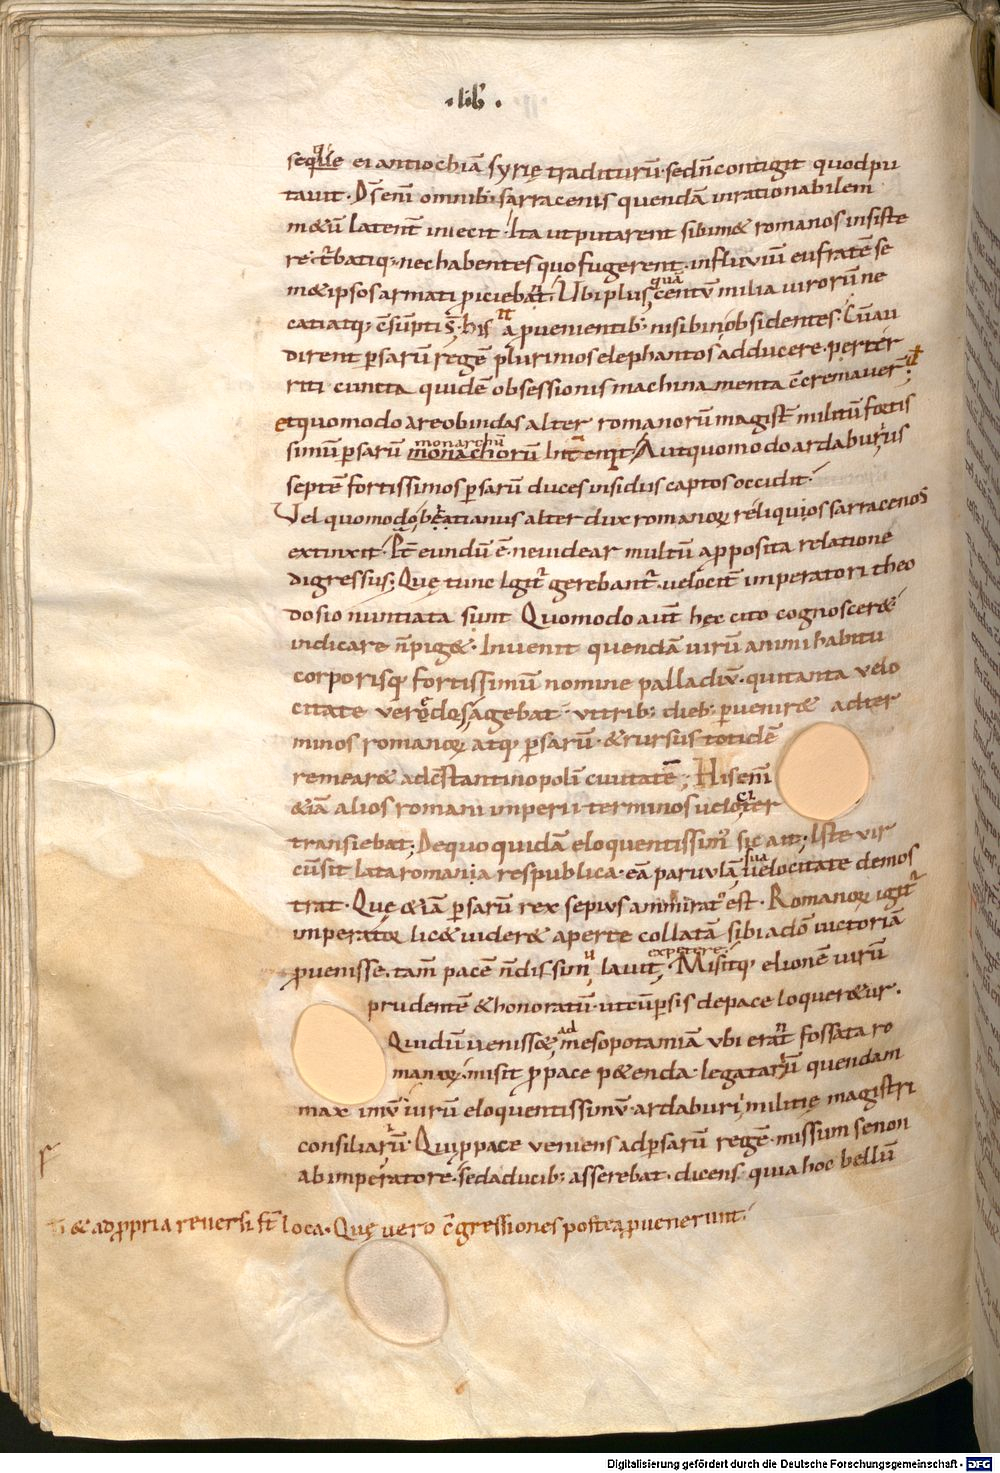 ·lib·
seque ei antiochiā syrię traditurū· sed n̄ contigit quod pu
tavit· D̄s eni̅ omnib; sarracenis quendā inrationabilem
m&ū latent̄ iniecit· Ita ut putarent sibi inm& romanos insiste
re· t̄batiq; nec habentes quo fugerent· in fluviū eufratē se
m&ipsos armati ꝓiciebānt· Ubi plus quā centū milia virorū ne
catiatq; c̄sūpti s̄· his ita ꝓvenientib; nisibin obsidentes· Cū au
dirent ꝑsarū regē plurimos elephantos adducere· perter
riti cuncta quidē obsessionis machinamenta c̄cremaver̄;
etquomodo areobindas alter romanorū magist̄ militū fortis
simū ꝑsarū monarchū
monachorū Int̄emit· Autquomodo ardaburius
septē fortissimos ꝑsarū duces insidiis captos occidit·
Vel quomodo beatianus alter dux romanoꝝ reliquios sarracenos
extinxit· Pt̄ eundū ē· ne videar multū apposita relatione
digressus; Quę tunc Igit̄ gerebant̄ velocit̄ imperatori theo
dosio nuntiata sunt Quomodo aut̄ hec cito cognoscer&
indicare n̄ pig&· Invenit quendā virū animi habitu
corporisq; fortissimū nomine palladiū· qui tanta velo
citate veredos agebat· ut trib; dieb; ꝑvenir& adter
minos romanoꝝ atq; ꝑsarū· & rursus totidē
remear& adc̄stantinopolī civitatē; His eni̅
&iā alios romani imperii terminos velociter
transiebat; De quo quidā eloquentissim' sic ait; Iste vir
cū sit lata romania respublica· eā parvulā sua velocitate demos
trat· Quę &iā ꝑsarū rex sepius ammirat' est· Romanoꝝ igit̄
imperator lic& vider& aperte collatā sibi adō victoriā
ꝓvenisse· tam̄ pacē n̄ dissimulavit expetere; Misitq; elionē virū
prudentē & honoratū· ut cū ꝑsis de pace loquer&ur·
Qui dū veniss& ad mesopotamiā ubi erant fossata ro
manoꝝ· misit ꝓ pace p&enda· legatariū quendam
maximū virū eloquentissimū· ardaburi militię magistri
consiliariū· Qui ꝓ pace veniens ad ꝑsarū regē· missum se non
ab imperatore· sed aducib; asserebat· dicens· quia hoc bellū
& ad ꝓpria reversi st̄ loca· Quę vero c̄gressiones postea ꝓvenerunt·
Digitalisierung gefördert durch die Deutsche Forschungsgemeinschaft - DFG